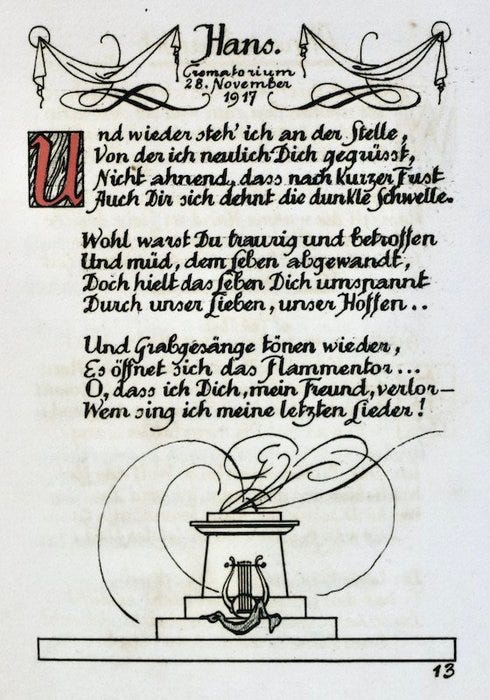 Hans.
Crematorium
28. November
1917
Und wieder steh' ich an der Stelle,
Von der ich neulich Dich gegrüsst,
Nicht ahnend, dass nach kurzer Frist
Auch Dir sich dehnt die dunkle Schwelle.
Wohl warst Du traurig und betroffen
Und müd, dem Leben abgewandt,
Doch hielt das Leben Dich umspannt
Durch unser Lieben, unser Hoffen..
Und Grabgesänge tönen wieder,
Es öffnet sich das Flammentor...
O, dass ich Dich, mein Freund, verlor—
Wem sing ich meine letzten Lieder!
13